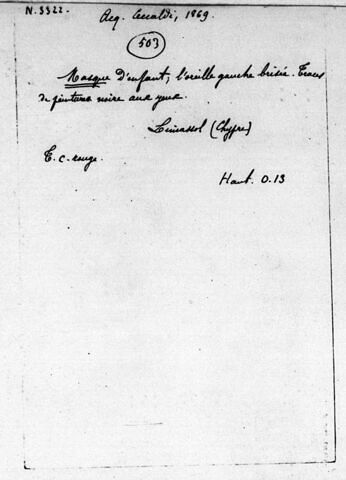 N. 3322.
Acq. Ceccaldi, 1869.
503
Masque d'enfant, l'oreille gauche brisée. Traces
de peinture noire aux yeux.
Limassol (Chypre)
T. c. rouge.
Haut. 0.13